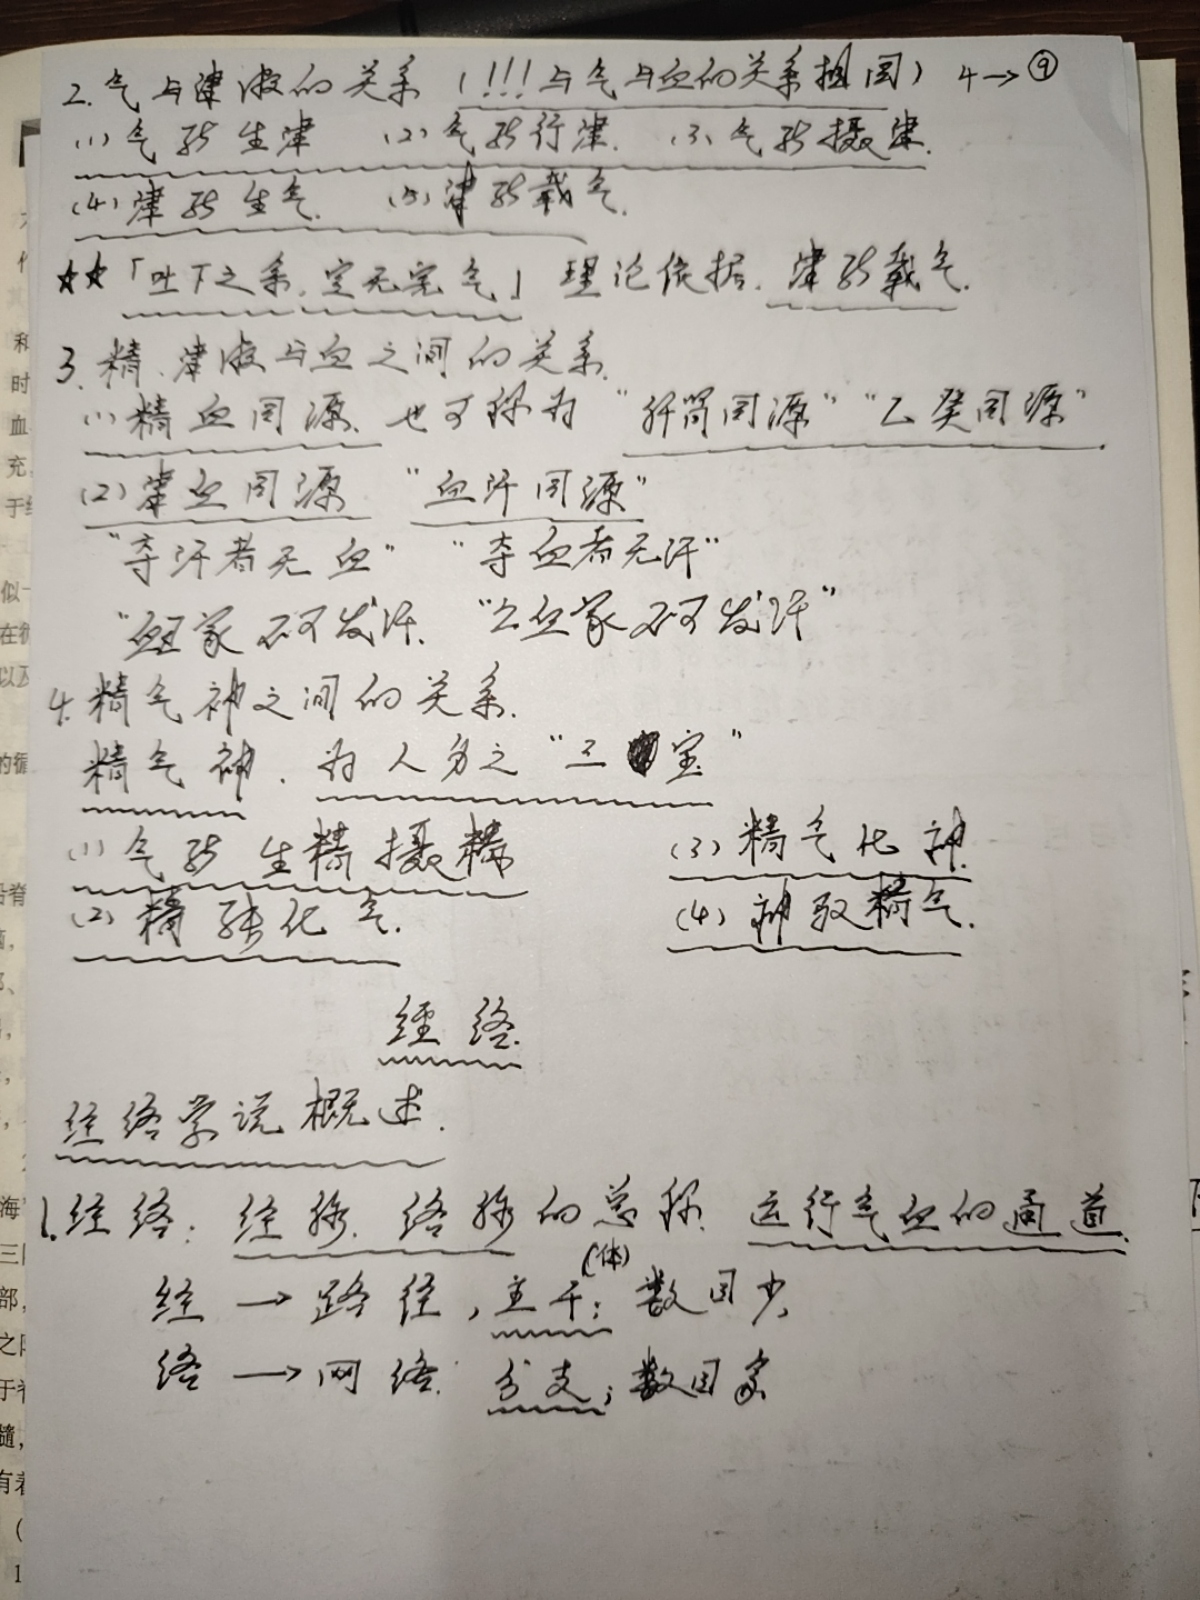 2.气与津液的关系（!!!与气与血的关系相同） 4→⑨
(1)气能生津 (2)气能行津. (3)气能摄津.
(4)津能生气. (5)津能载气.
★★「吐下之余,定无完气」理论依据.津能载气.
3.精、津液与血之间的关系.
(1)精血同源. 也可称为"肝肾同源""乙癸同源"
(2)津血同源 "血汗同源"
"夺汗者无血" "夺血者无汗"
"衄家不可发汗. "亡血家不可发汗"
4.精气神之间的关系.
精气神. 为人身之"三宝"
(1)气能生精摄精 (3)精气化神.
(2)精能化气. (4)神驭精气.
经络.
经络学说概述.
1.经络:经脉.络脉的总称.运行气血的通道.
(体)
经→路径,主干;数目少,
络→网络.分支;数目多
和
时
血
充,
于经
似
在
以及
的循
海
三
部,
之
于
髓,
有着
(
1